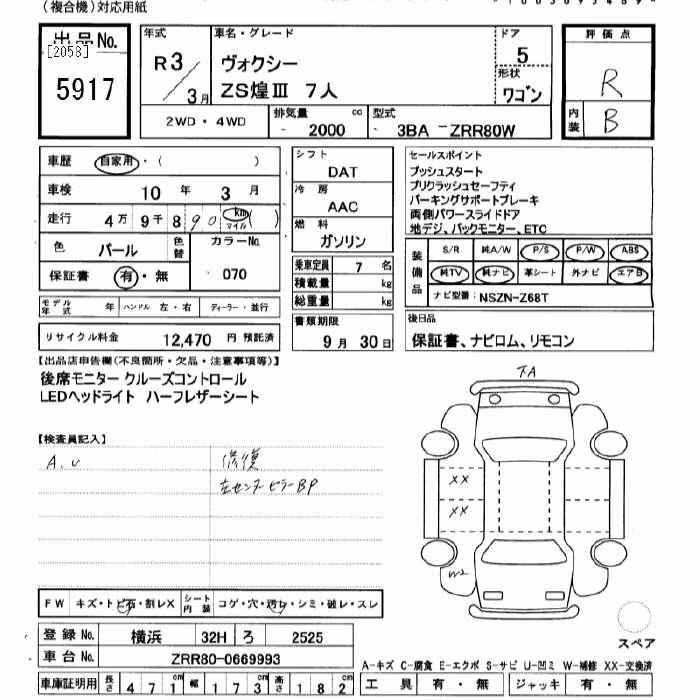 (複合機)対応用紙
出品No.
[2058]
5917
年式
R3/3月
車名・グレード
ヴォクシー
ZS煌Ⅲ 7人
ドア
5
形状
ワゴン
2WD・4WD
排気量
- 2000 cc
型式
3BA - ZRR80W
評価点
R
内装
B
車歴 自家用・( )
車検 10年 3月
走行 4万9千890 km マイル ( )
色 パール 色替 カラーNo.
保証書 有・無 070
モデル年式 年 ハンドル 左・右 ディーラー・並行
リサイクル料金 12,470 円 預託済
シフト
DAT
冷房
AAC
燃料
ガソリン
乗車定員 7 名
積載量 kg
総重量 kg
書類期限
9月 30日
セールスポイント
プッシュスタート
プリクラッシュセーフティ
パーキングサポートブレーキ
両側パワースライドドア
地デジ、バックモニター、ETC
装備品
S/R 純A/W P/S P/W ABS
純TV 純ナビ 革シート 外ナビ エアB
ナビ型番: NSZN-Z68T
後日品
保証書、ナビロム、リモコン
【出品店申告欄(不良箇所・欠品・注意事項等)】
後席モニター クルーズコントロール
LEDヘッドライト ハーフレザーシート
【検査員記入】
A. U
修復
左センターピラーBP
F.A
XX
XX
W2
FW キズ・トビ石・割レX シート内装 コゲ・穴・汚レ・シミ・破レ・スレ
登録No. 横浜 32H ろ 2525
車台No. ZRR80-0669993
車庫証明用 長さ 471cm 幅 173cm 高さ 182cm
スペア
A-キズ C-腐食 E-エクボ S-サビ U-凹ミ W-補修 XX-交換済
工具 有・無 ジャッキ 有・無